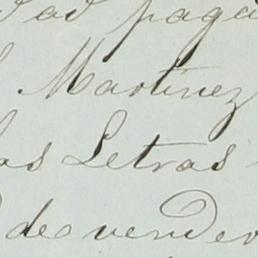 dad paga
Martinez
las Letras
de vender